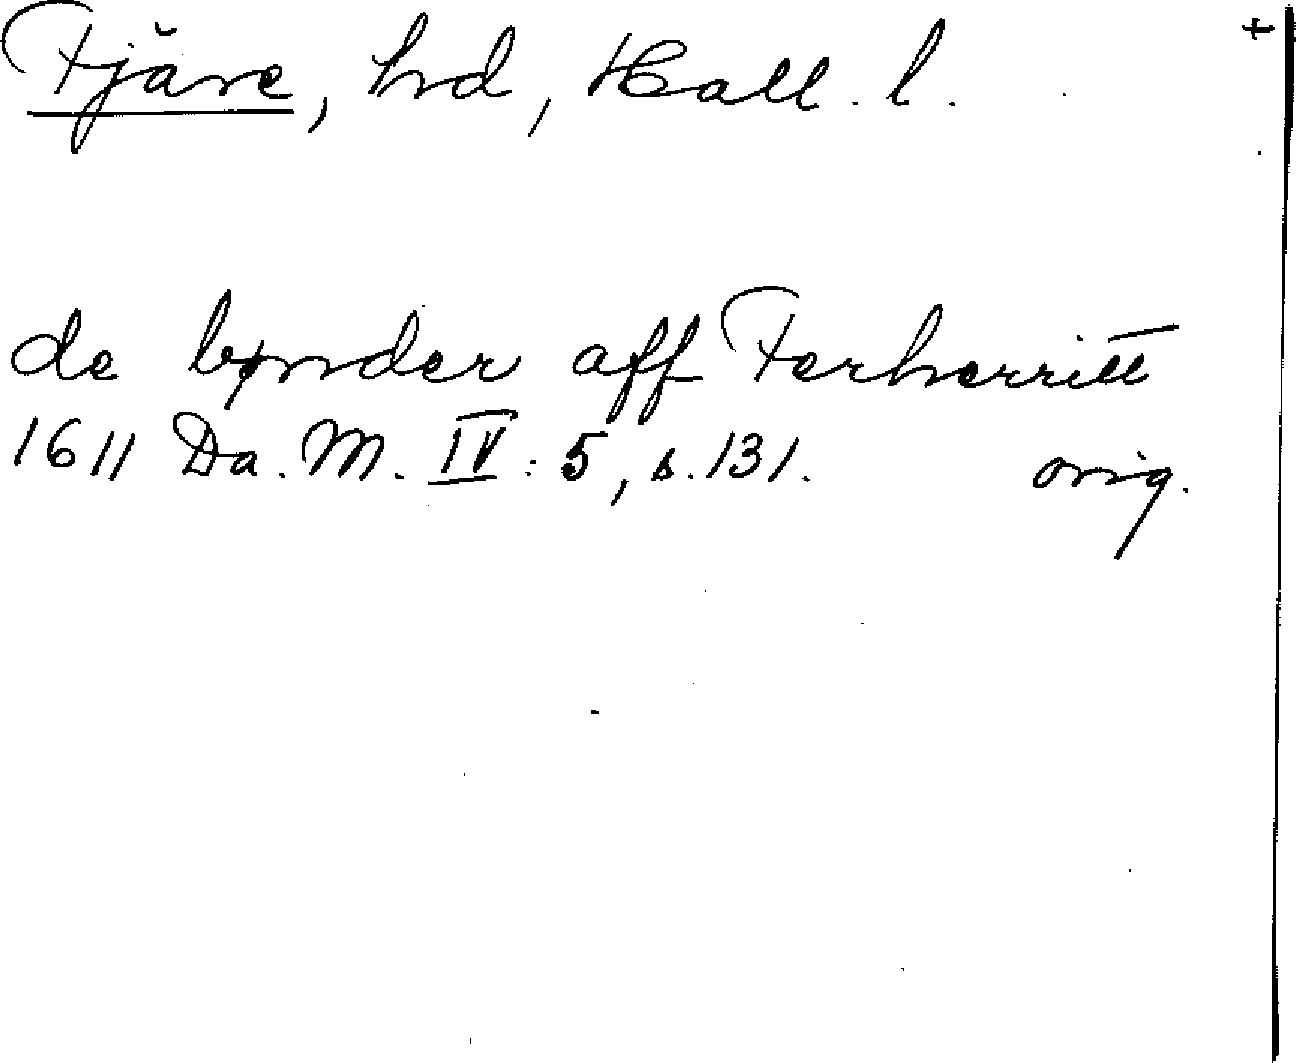 Fjäre, hrd, Hall. l.
de bønder aff Ferherritt
1611 Da. M. IV: 5, s. 131. orig.